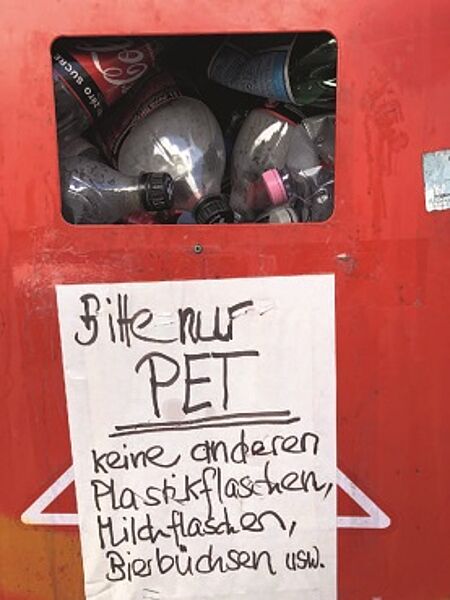 zéro SUCRE
Bitte nur
PET
keine anderen
Plastikflaschen,
Milchflaschen,
Bierbüchsen usw.